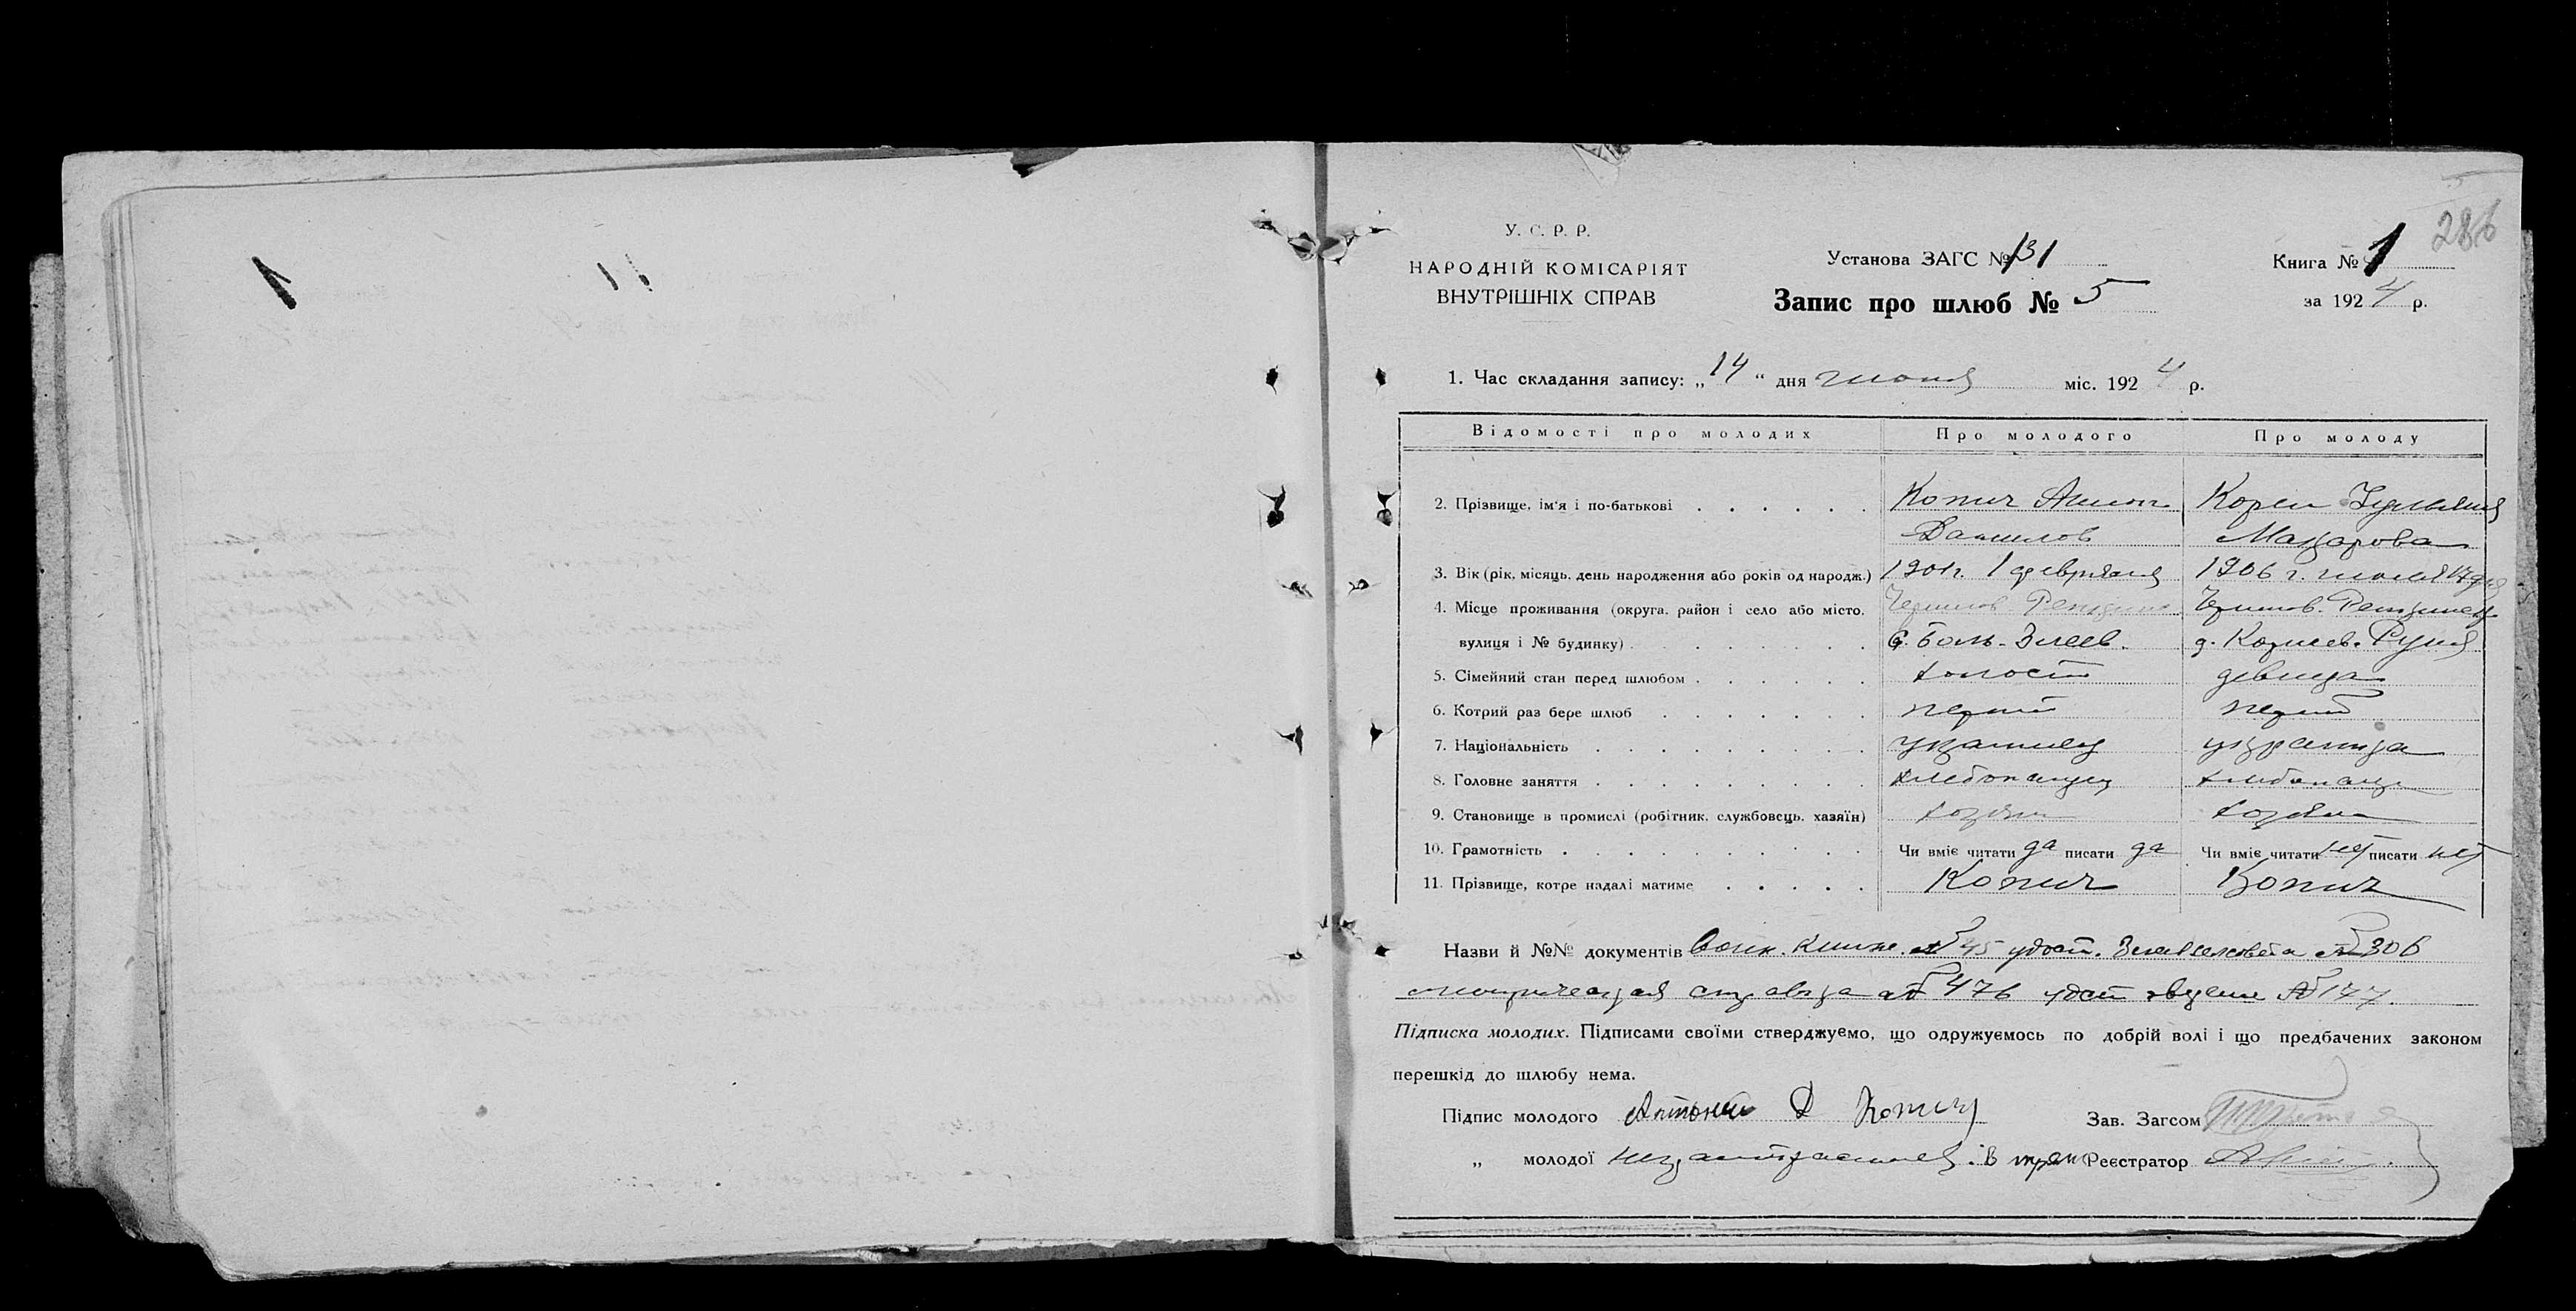 286
У. С. Р. Р.
НАРОДНІЙ КОМІСАРІЯТ
ВНУТРІШНІХ СПРАВ
Установа ЗАГС № 131
Запис про шлюб № 5
Книга № 1
за 1924 р.
1. Час складання запису: „14“ дня июня міс. 1924 р.
Відомості про молодих Про молодого Про молоду
2. Прізвище, ім'я і по-батькові Копич Антон Корен
Данилов Макарова
3. Вік (рік, місяць, день народження або років од народж.) 1901 г. 1 февраля 1906 г. 17
4. Місце проживання (округа, район і село або місто, Чернигов. Репкинск. Чернигов. Репкинск
вулиця і № будинку) с. Боль. Злеев. д. Рудня
5. Сімейний стан перед шлюбом холост девица
6. Котрий раз бере шлюб перший перший
7. Національність украинец украинка
8. Головне заняття хлебопашец хлебопаш
9. Становище в промислі (робітник, службовець, хазяїн) хозяин хозяин
10. Грамотність Чи вміє читати да писати да Чи вміє читати нет писати нет
11. Прізвище, котре надалі матиме Копич Копич
Назви й №№ документів Воин. книж. № 45 удост. Злеевсельсовета № 306
справка № 476 удост № 177.
Підписка молодих. Підписами своїми стверджуємо, що одружуємось по добрій волі і що предбачених законом
перешкід до шлюбу нема.
Підпис молодого Антоний Д Копич Зав. Загсом
„ молодої неграмотная Реєстратор